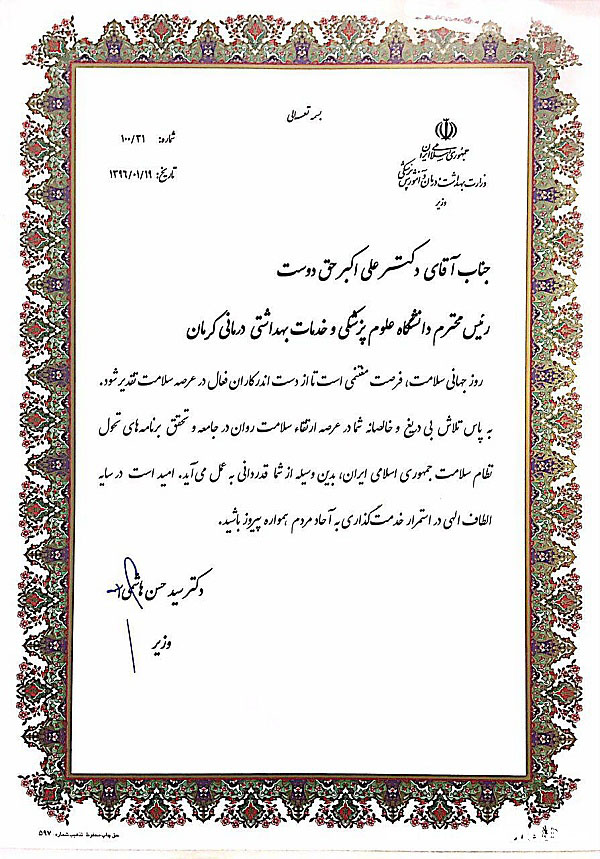 بسمه تعالی
جمهوری اسلامی ایران
وزارت بهداشت درمان و آموزش پزشکی
وزیر
شماره: ۱۰۰/۳۱
تاریخ: ۱۳۹۶/۰۱/۱۹
جناب آقای دکتر علی اکبر حق دوست
رئیس محترم دانشگاه علوم پزشکی و خدمات بهداشتی درمانی کرمان
روز جهانی سلامت، فرصت مغتنمی است تا از دست اندرکاران فعال در عرصه سلامت تقدیر شود.
به پاس تلاش بی دریغ و خالصانه شما در عرصه ارتقاء سلامت روان در جامعه و تحقق برنامه های تحول
نظام سلامت جمهوری اسلامی ایران، بدین وسیله از شما قدردانی به عمل می آید. امید است در سایه
الطاف الهی در استمرار خدمت گذاری به آحاد مردم همواره پیروز باشید.
دکتر سید حسن هاشمی
وزیر
حق چاپ محفوظ تذهیب شماره ۵۹۷